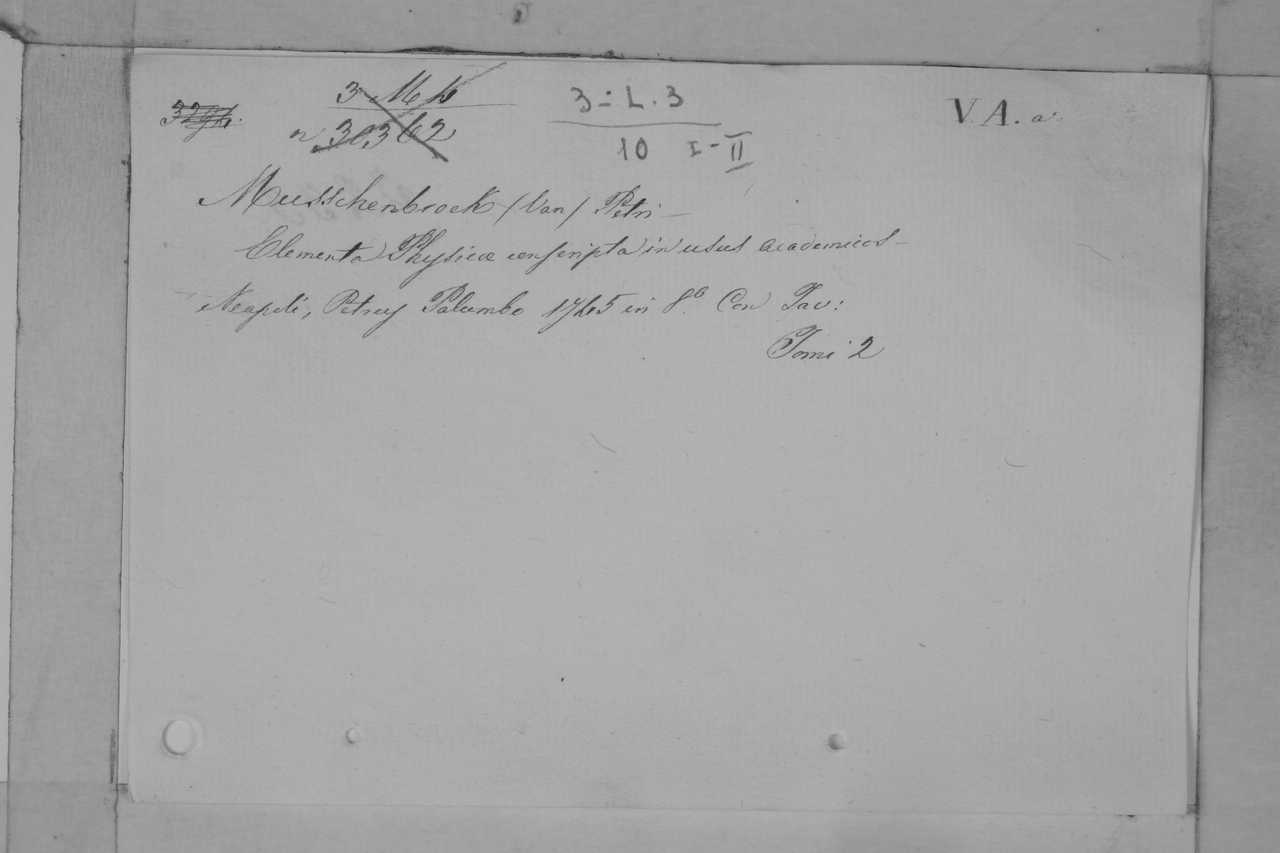 3 - L. 3
10 I-II
V. A. a.
Musschenbroek (Van) Petri -
Elementa Physicæ conscripta in usus academicos -
Neapoli, Petrus Palumbo 1745 in 8º Con Tav:
Tomi 2